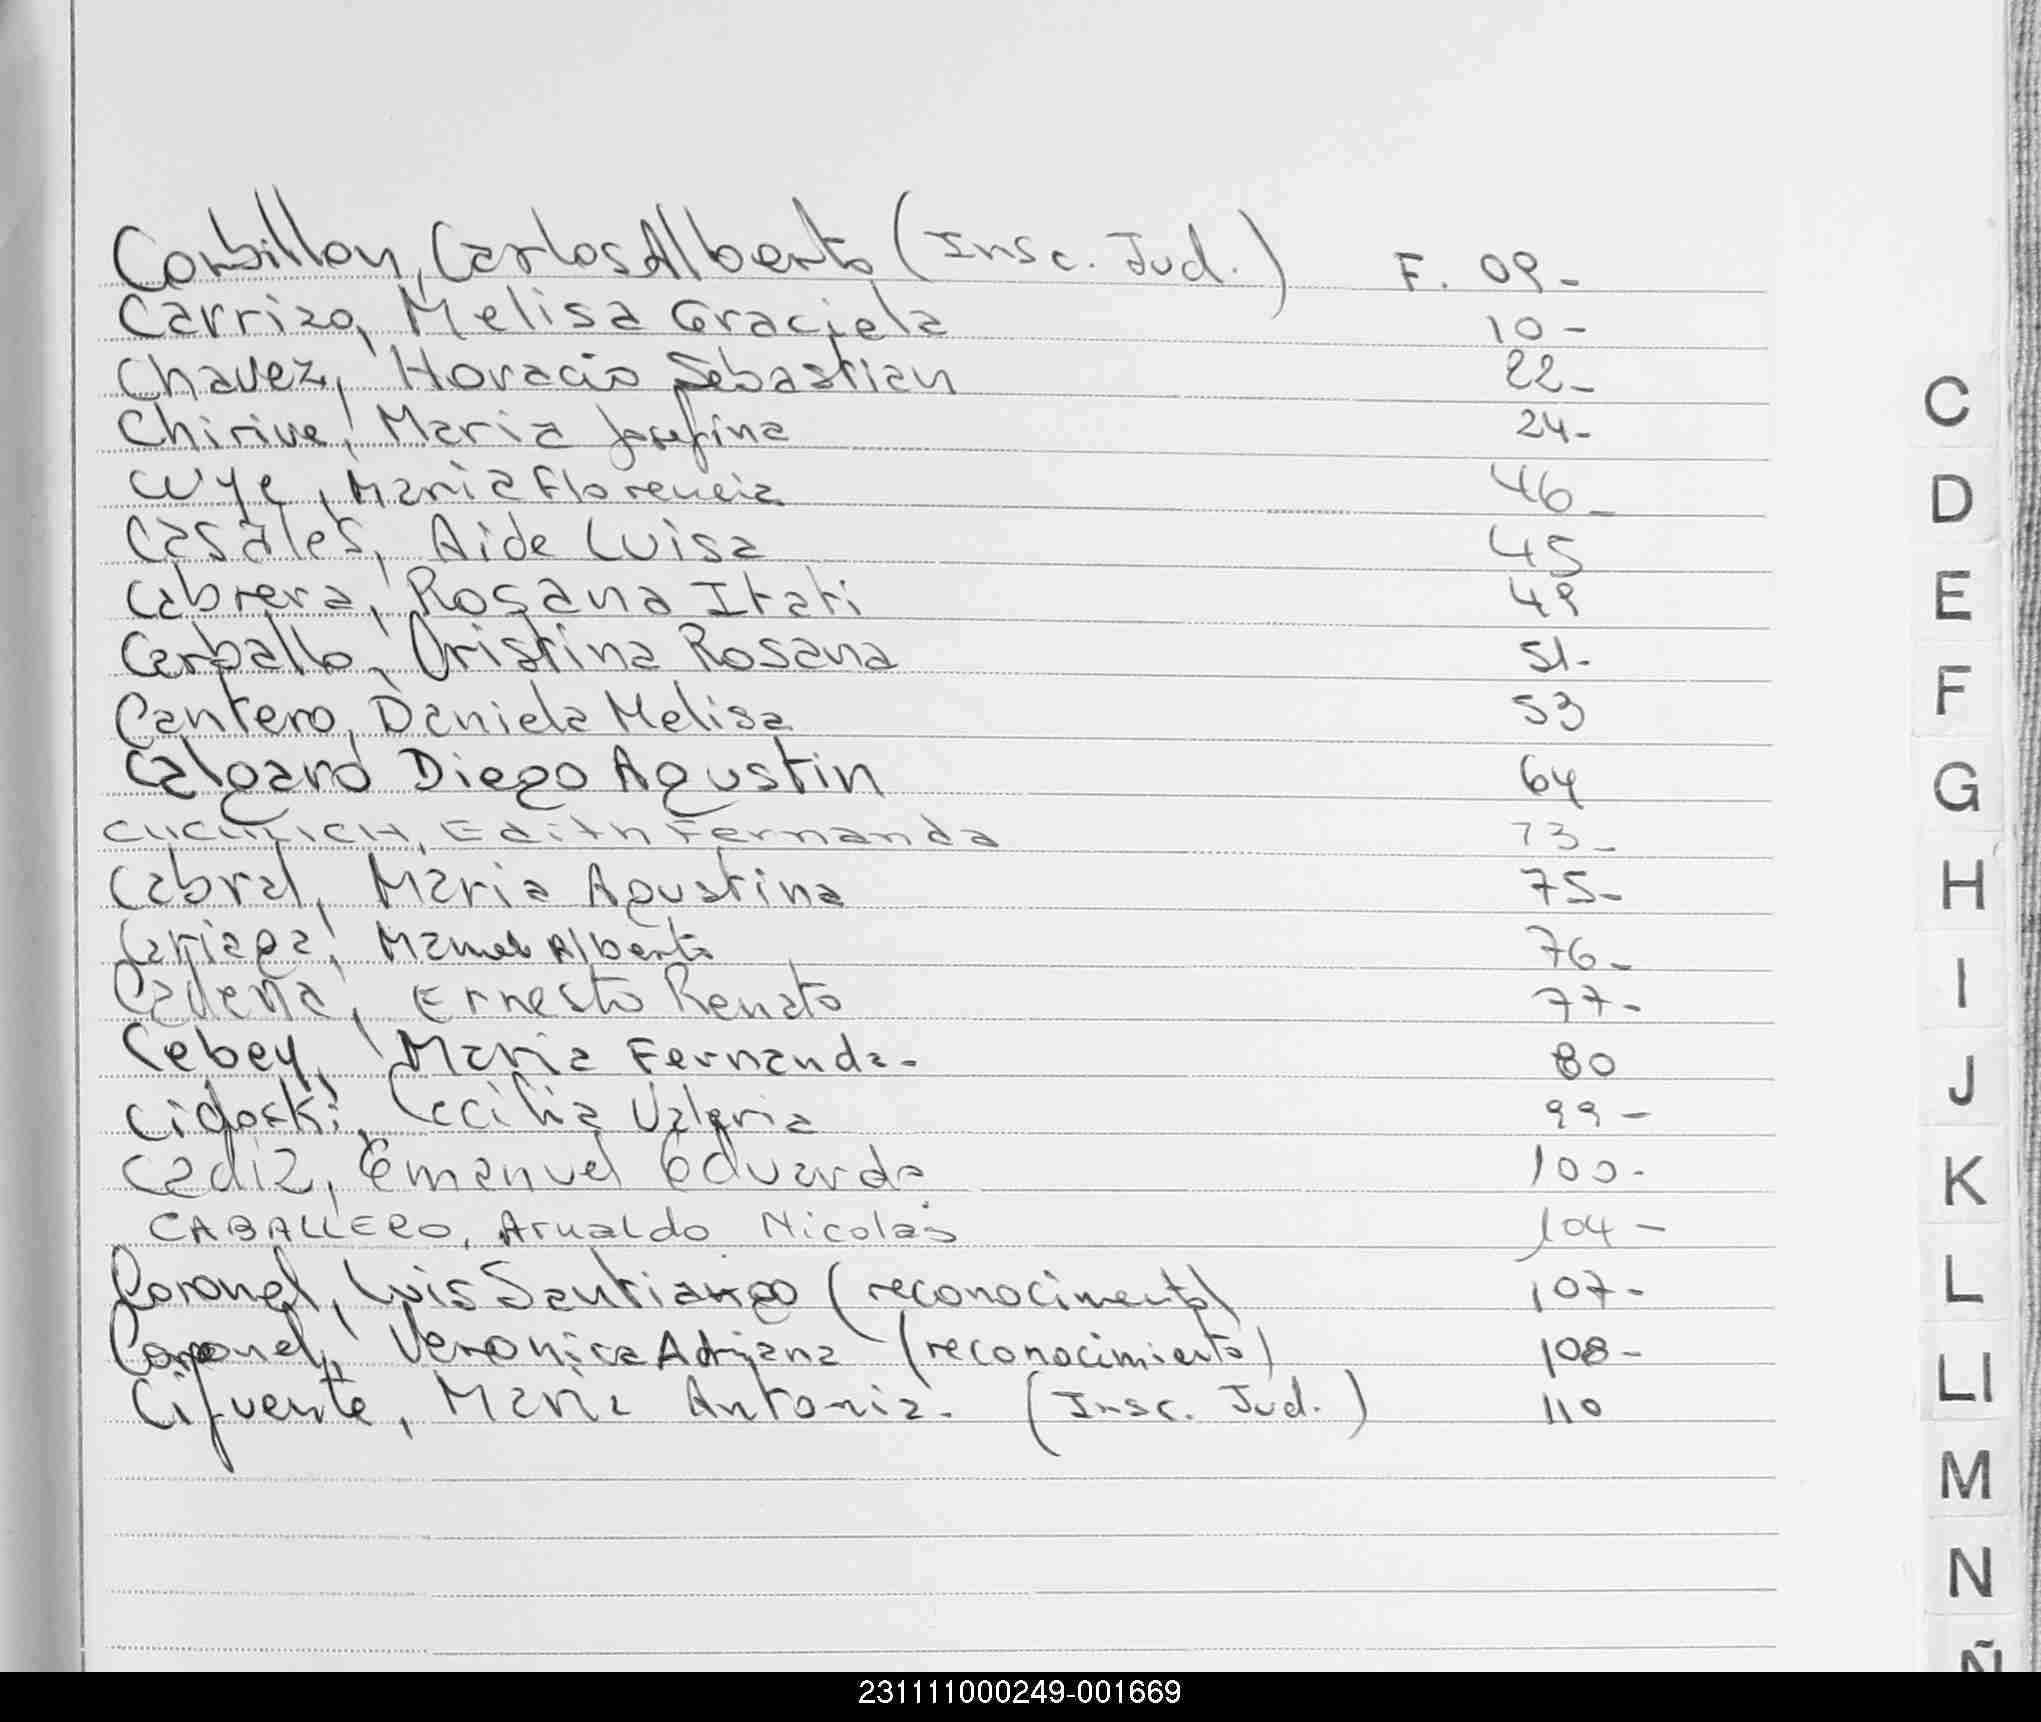 Corbillon, Carlos Alberto (Insc. Jud.) F. 09-
Carrizo, Melisa Graciela 10-
Chavez, Horacio Sebastian 22-
Chirive, Maria Josefina 24-
Cuye, Maria Florencia 46-
Casales, Aide Luisa 45
Cabrera, Rosana Itati 49
Carballo, Cristina Rosana 51-
Cantero, Daniela Melisa 53
Calgaro Diego Agustin 64
Edith Fernanda 73-
Cabral, Maria Agustina 75-
Carriaga, Manuel Alberto 76-
Cadena, Ernesto Renato 77-
Cebey, Maria Fernanda- 80
Cidoski, Cecilia Valeria 99-
Cadiz, Emanuel Eduardo 100-
CABALLERO, Arnaldo Nicolás 104-
Coronel, Luis Santiango (reconocimento) 107-
Coronel, Veronica Adriana (reconocimiento) 108-
Cifuente, Maria Antonia. (Insc. Jud.) 110
C
D
E
F
G
H
I
J
K
L
Ll
M
N
Ñ
231111000249-001669